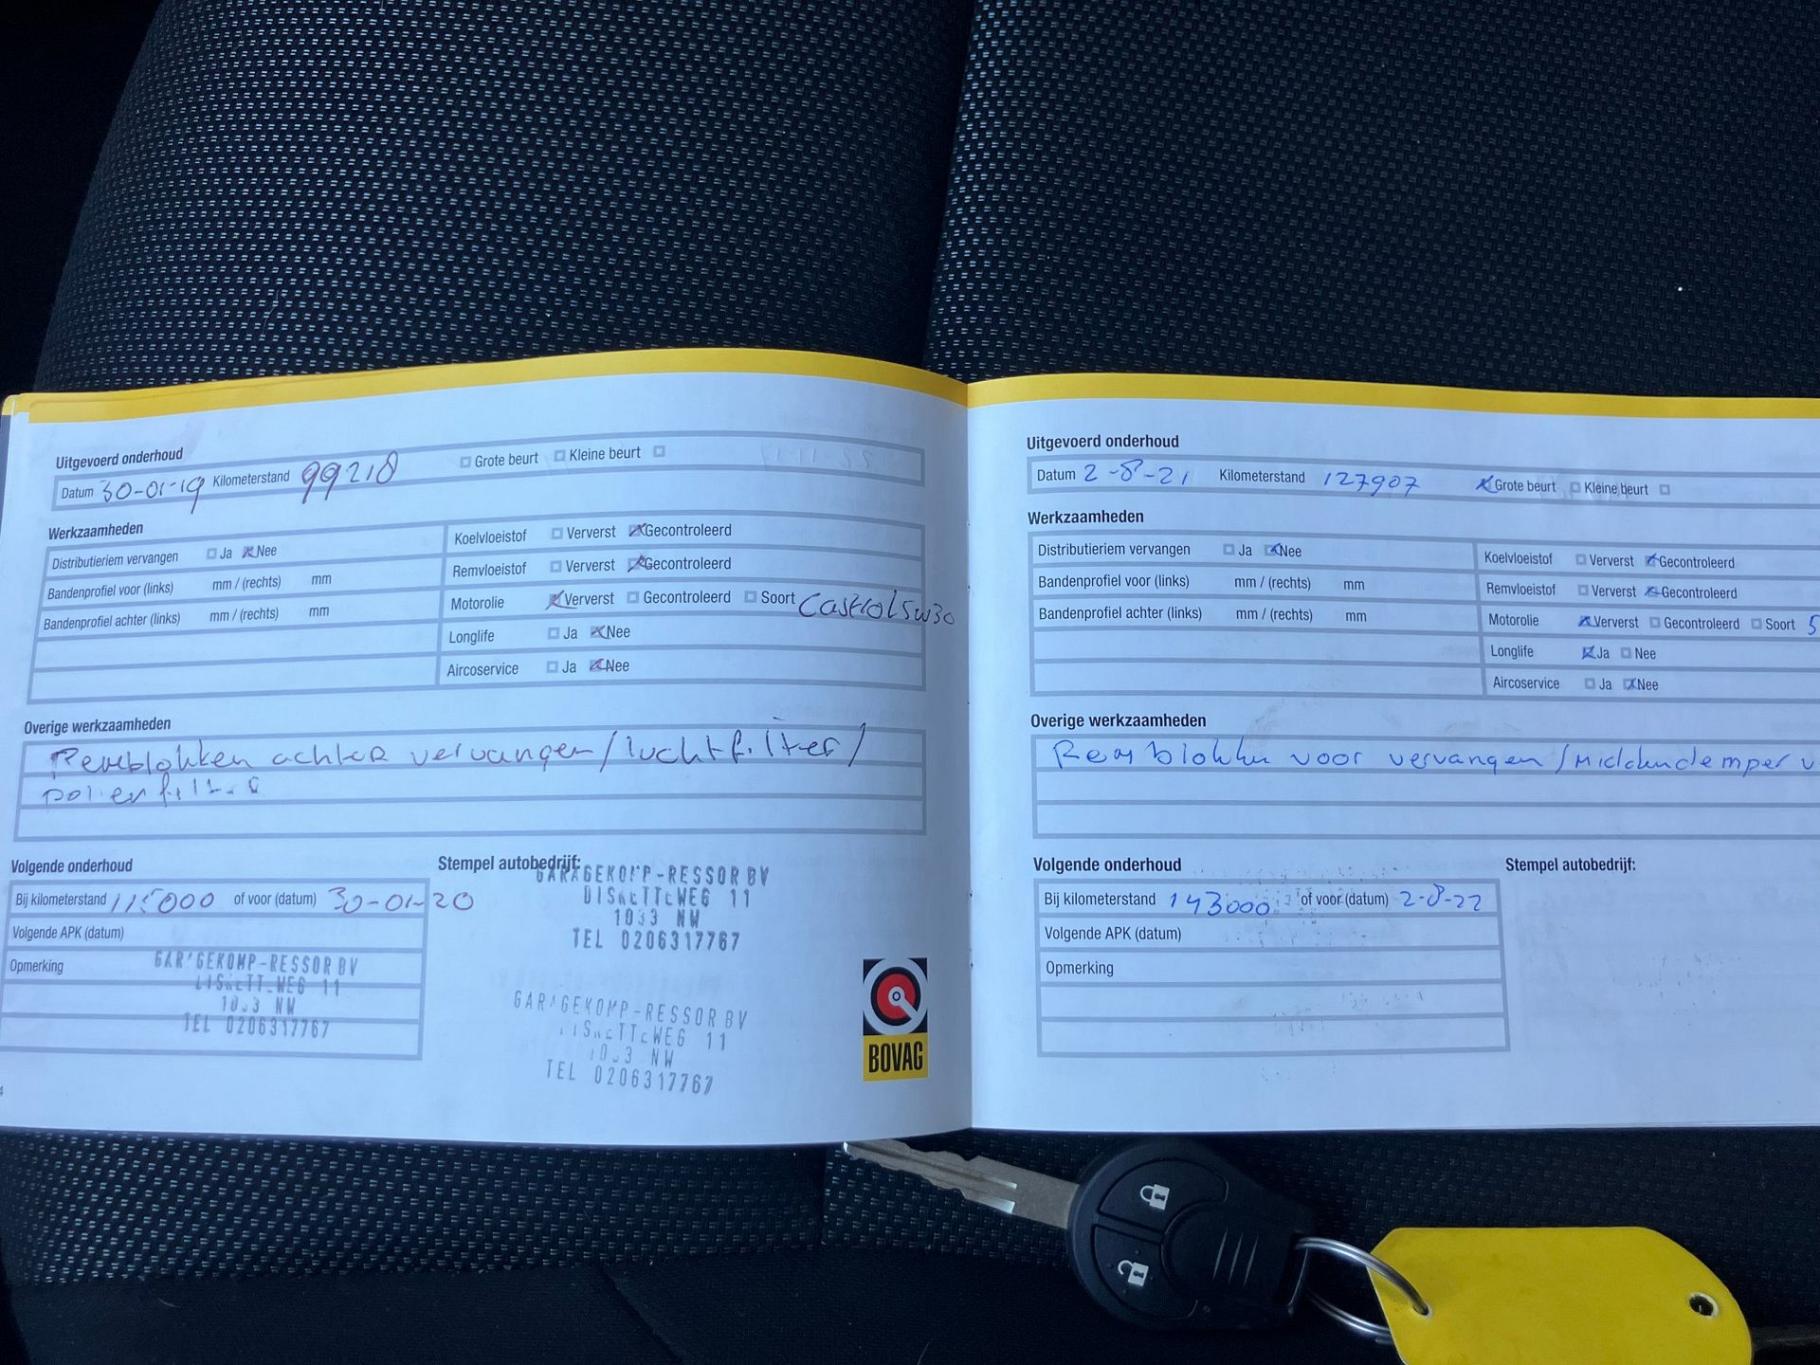 Uitgevoerd onderhoud
Datum 30-01-19 Kilometerstand 99218 Grote beurt Kleine beurt
Werkzaamheden
Distributieriem vervangen Ja Nee
Bandenprofiel voor (links) mm / (rechts) mm
Bandenprofiel achter (links) mm / (rechts) mm
Koelvloeistof Ververst Gecontroleerd
Remvloeistof Ververst Gecontroleerd
Motorolie Ververst Gecontroleerd Soort Castrol 5w30
Longlife Ja Nee
Aircoservice Ja Nee
Overige werkzaamheden
Remblokken achter vervangen/luchtfilter/
pollenfilter
Volgende onderhoud
Bij kilometerstand 115000 of voor (datum) 30-01-20
Volgende APK (datum)
Opmerking
GARAGEKOMP-RESSOR BV
DISKETTEWEG 11
1033 NW
TEL 0206317767
Stempel autobedrijf:
GARAGEKOMP-RESSOR BV
DISKETTEWEG 11
1033 NW
TEL 0206317767
GARAGEKOMP-RESSOR BV
DISKETTEWEG 11
1033 NW
TEL 0206317767
BOVAG
Uitgevoerd onderhoud
Datum 2-8-21 Kilometerstand 127907 Grote beurt Kleine beurt
Werkzaamheden
Distributieriem vervangen Ja Nee
Bandenprofiel voor (links) mm / (rechts) mm
Bandenprofiel achter (links) mm / (rechts) mm
Koelvloeistof Ververst Gecontroleerd
Remvloeistof Ververst Gecontroleerd
Motorolie Ververst Gecontroleerd Soort 5
Longlife Ja Nee
Aircoservice Ja Nee
Overige werkzaamheden
Remblokken voor vervangen/Middendemper v
Volgende onderhoud
Bij kilometerstand 143000 of voor (datum) 2-8-22
Volgende APK (datum)
Opmerking
Stempel autobedrijf: